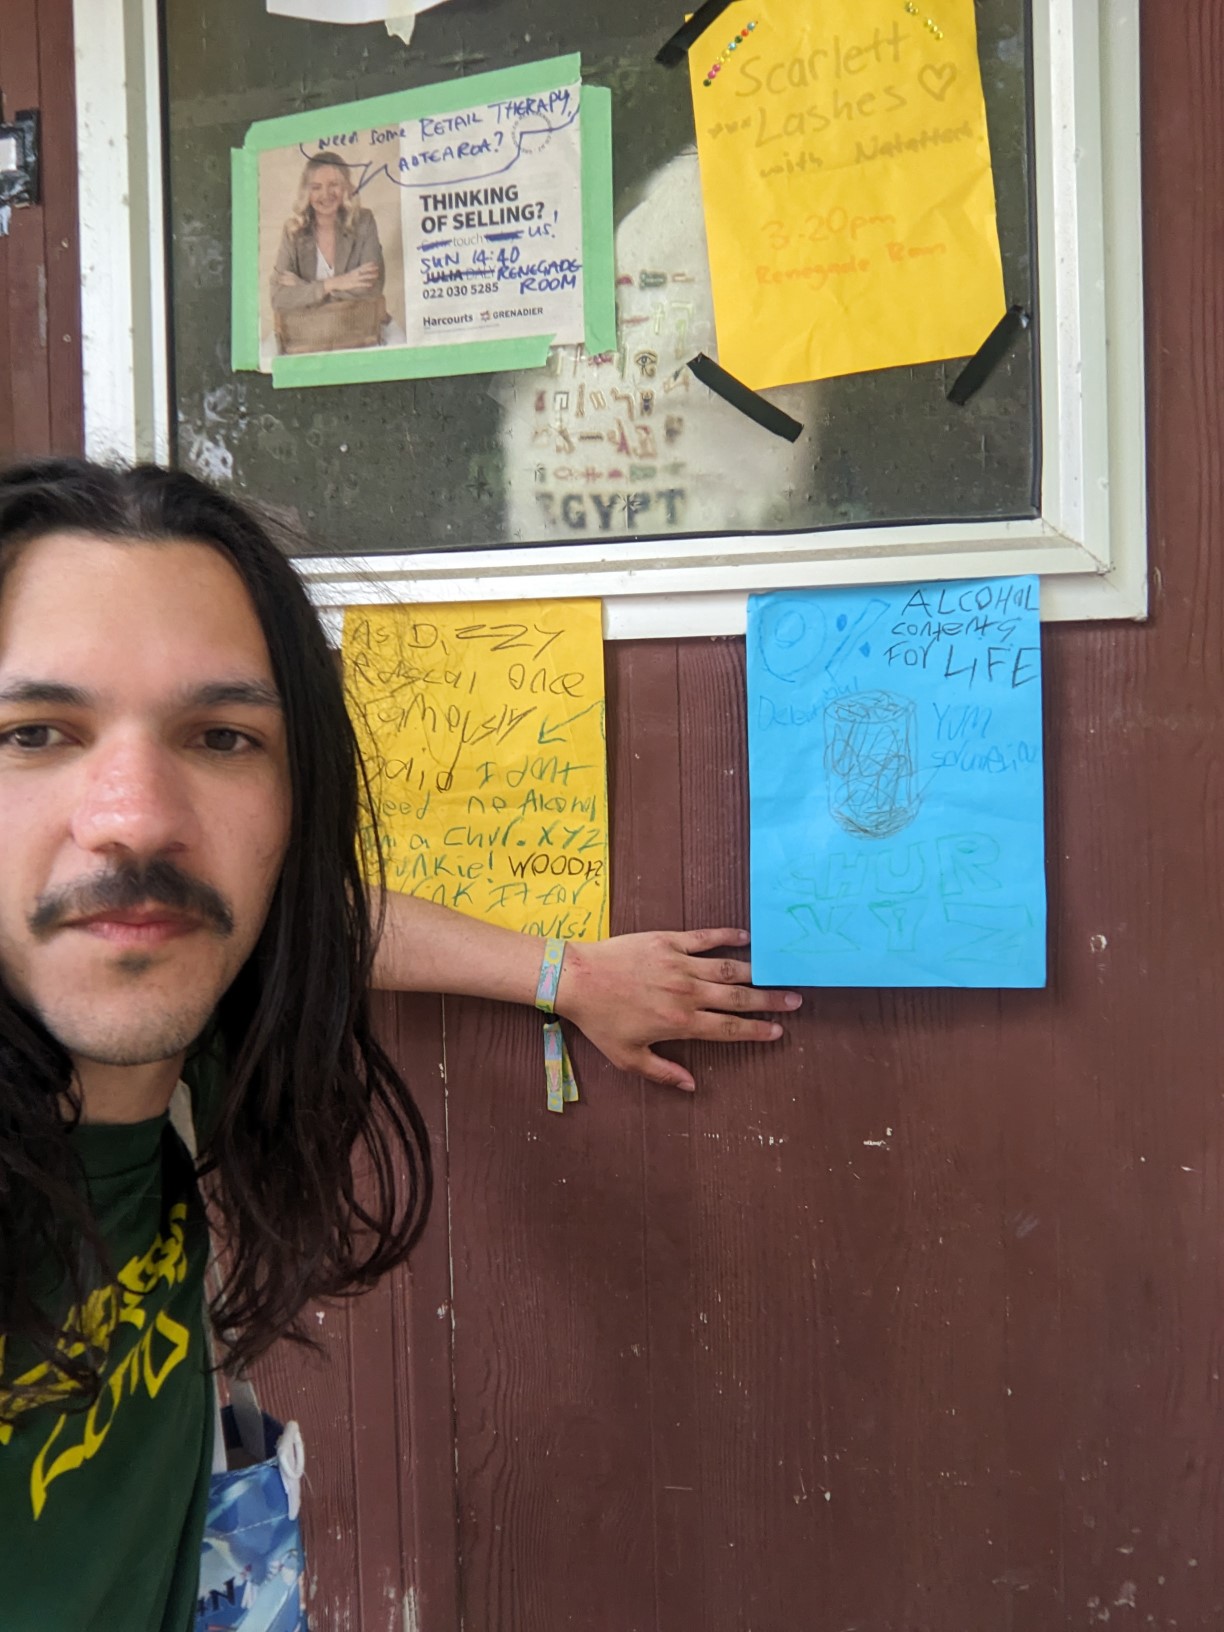 NEED some RETAIL THERAPY,
AOTEAROA?
THINKING
OF SELLING?
touch US!
SUN 14:40
JULIA DALY RENEGADE
022 030 5285 ROOM
Harcourts GRENADIER
Scarlett
Lashes
with
3.20pm
Renegade
EGYPT
As DizzZY
Rascal once
Famously
Said I dont
Need no Alcohol
Im a chur. XYZ
Junkie! WOODFZ
IT For
yours!
0% ALCOHOL
contents
FOR LIFE
YUM
CHUR
XYZ